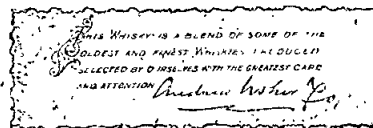 THIS WHISKY IS A BLEND OF SOME OF THE
OLDEST AND FINEST WHISKIES PRODUCED
SELECTED BY OURSELVES WITH THE GREATEST CARE
AND ATTENTION Andrew Usher & Co.